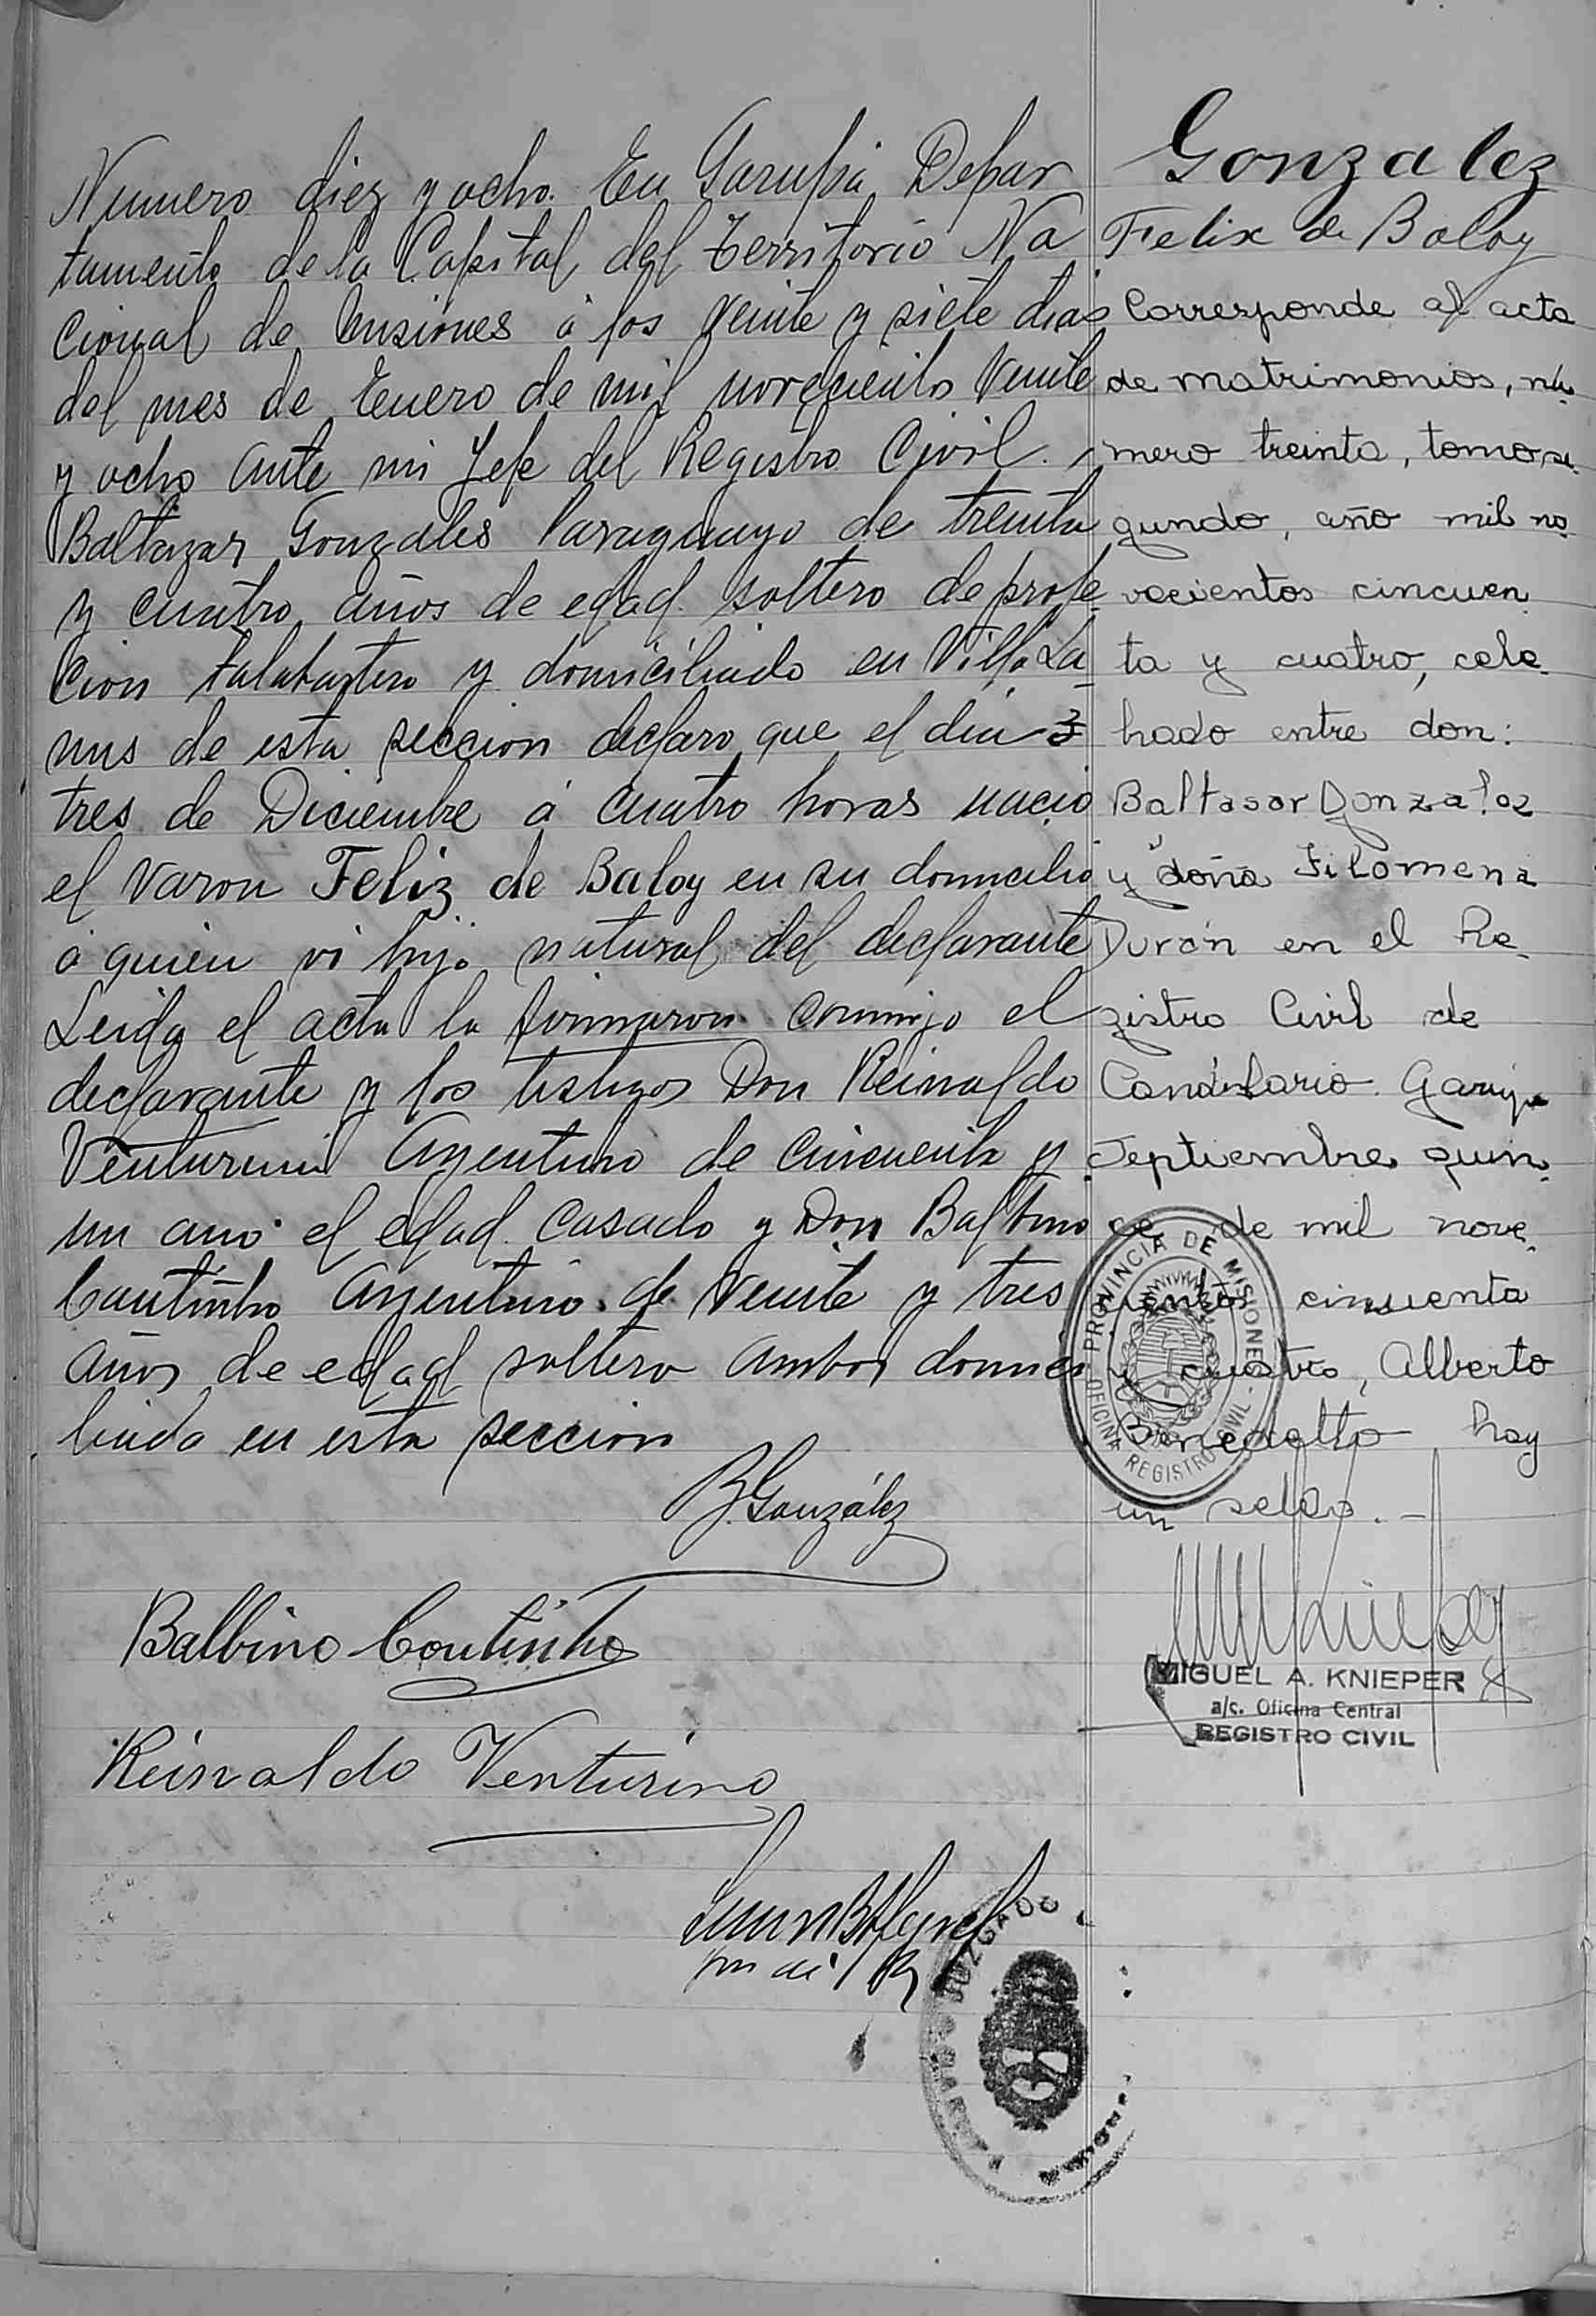 Numero diez y ocho. En Garupá, Depar
tamento de la Capital, del Territorio Na
cional de Misiones á los veinte y siete dias
del mes de Enero de mil novecientos Veinte
y ocho ante mi Jefe del Registro Civil.
Baltazar Gonzales Paraguayo de treinta
y cuatro años de edad soltero de profe
cion talabartero y domiciliado en Villa La
nus de esta seccion declaro que el dia 3
tres de Diciembre á cuatro horas nació
el varon Feliz de Baloy en su domicilio
á quien vi hijo natural del declarante
Leida el acta la firmaron conmigo el
declarante y los testigos Don Reinaldo
Venturini Argentino de cincuenta y
un año el edad casado y Don Balbino
Coutinho Argentino de veinte y tres
años de edad soltero ambos domici
liado en esta seccion
B. González
Balbino Coutinho
Reinaldo Venturino
JUZGADO
Gonzalez
Felix de Baloy
Corresponde al acta
de matrimonios, nú
mero treinta, tomo se
gundo, año mil no
vecientos cincuen
ta y cuatro, cele
hado entre don:
Baltasar Gonzalez
y doña Filomena
Durán en el Re
gistro Civil de
Candelaria. Garupa
Septiembre quin
ce de mil nove
cientos cincuenta
y cuatro, Alberto
Benedetto hay
un sello.-
PROVINCIA DE MISIONES
OFICINA REGISTRO CIVIL
MIGUEL A. KNIEPER
a/c. Oficina Central
REGISTRO CIVIL